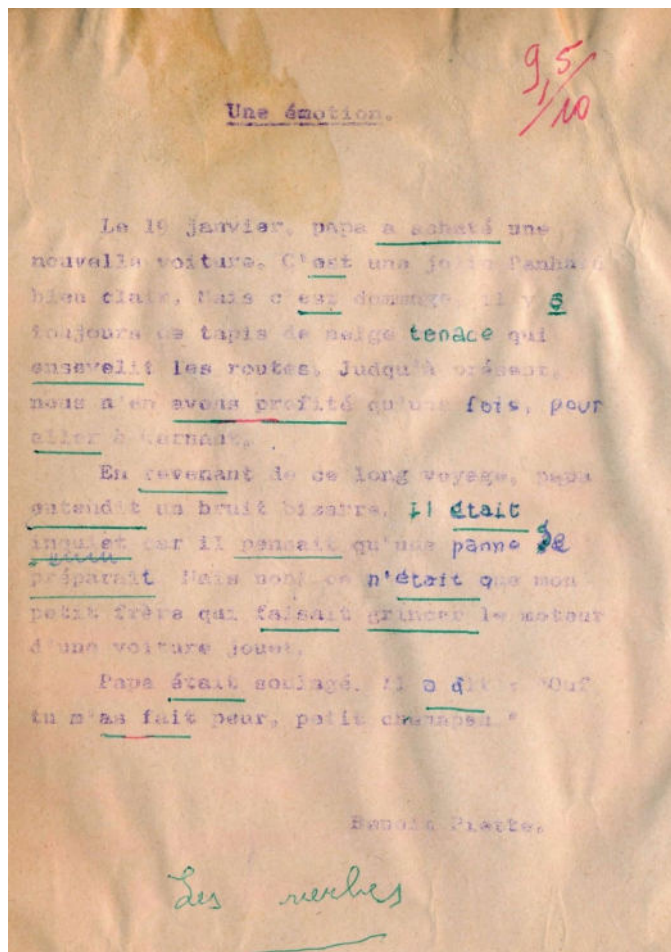 9,5/10
Une émotion.
Le 19 janvier, papa a acheté une
nouvelle voiture. C'est une jolie Panhard
bleu clair. Mais c'est dommage, il y a
toujours ce tapis de neige tenace qui
ensevelit les routes. Judqu'à présent,
nous n'en avons profité qu'une fois, pour
aller à
En revenant de ce long voyage, papa
entendit un bruit bizarre. Il était
inquiet car il pensait qu'une panne se
préparait. Mais non! ce n'était que mon
petit frère qui faisait grincer le moteur
d'une voiture jouet.
Papa était soulagé. Il a dit : "Ouf
tu m'as fait peur, petit chenapan."
Benoît Piette.
Les verbes